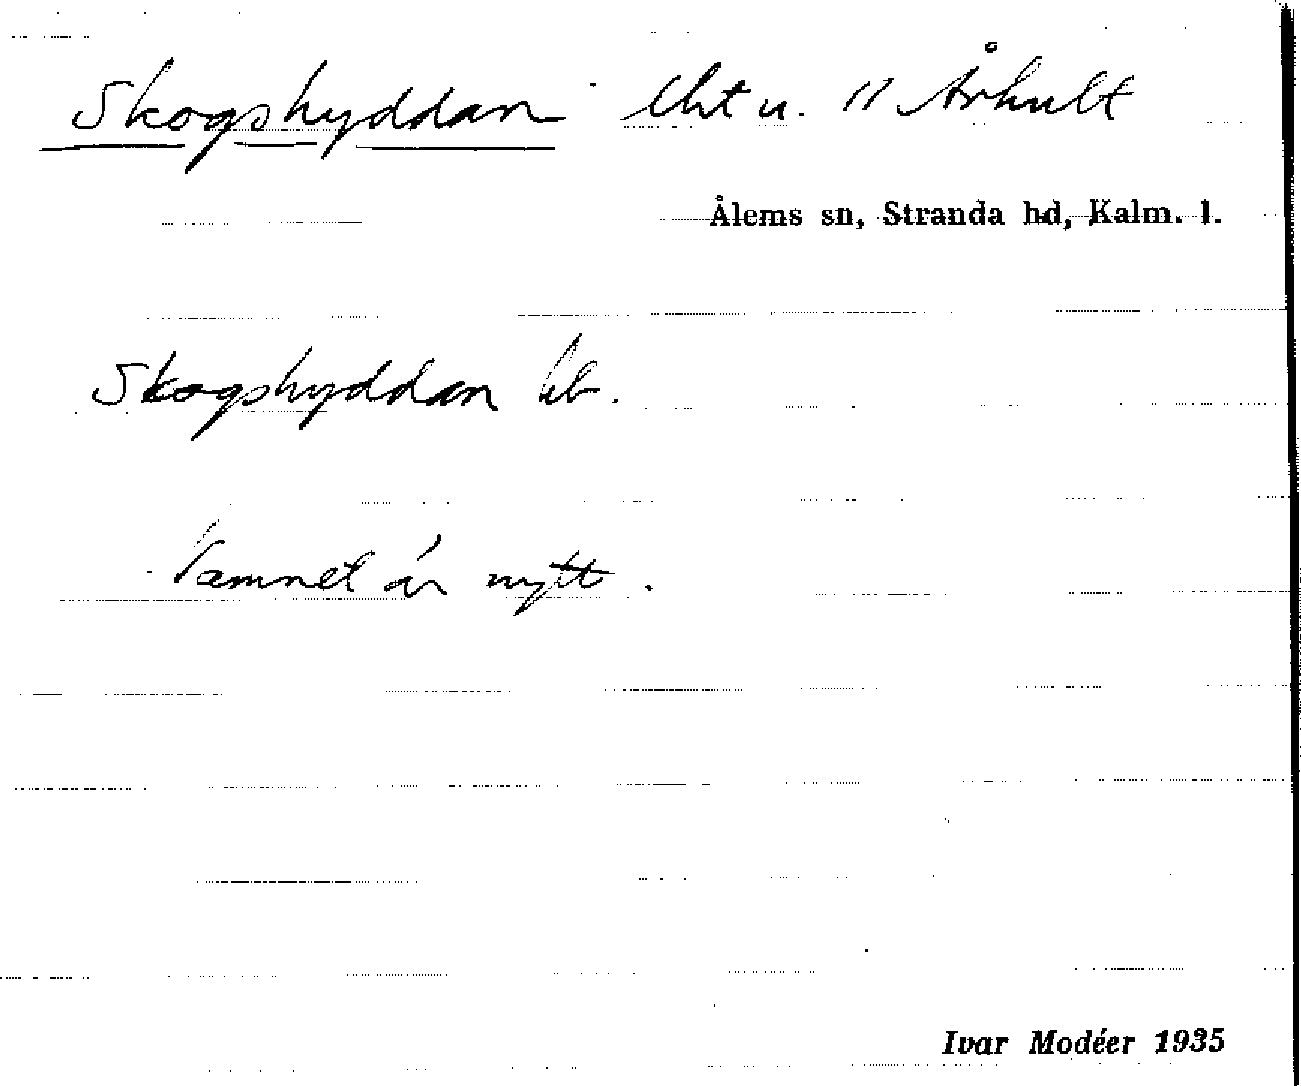 Skogshyddan lht u. 11 Århult
Ålems sn, Stranda hd, Kalm. l.
Skogshyddan kb.
Namnet är nytt.
Ivar Modéer 1935